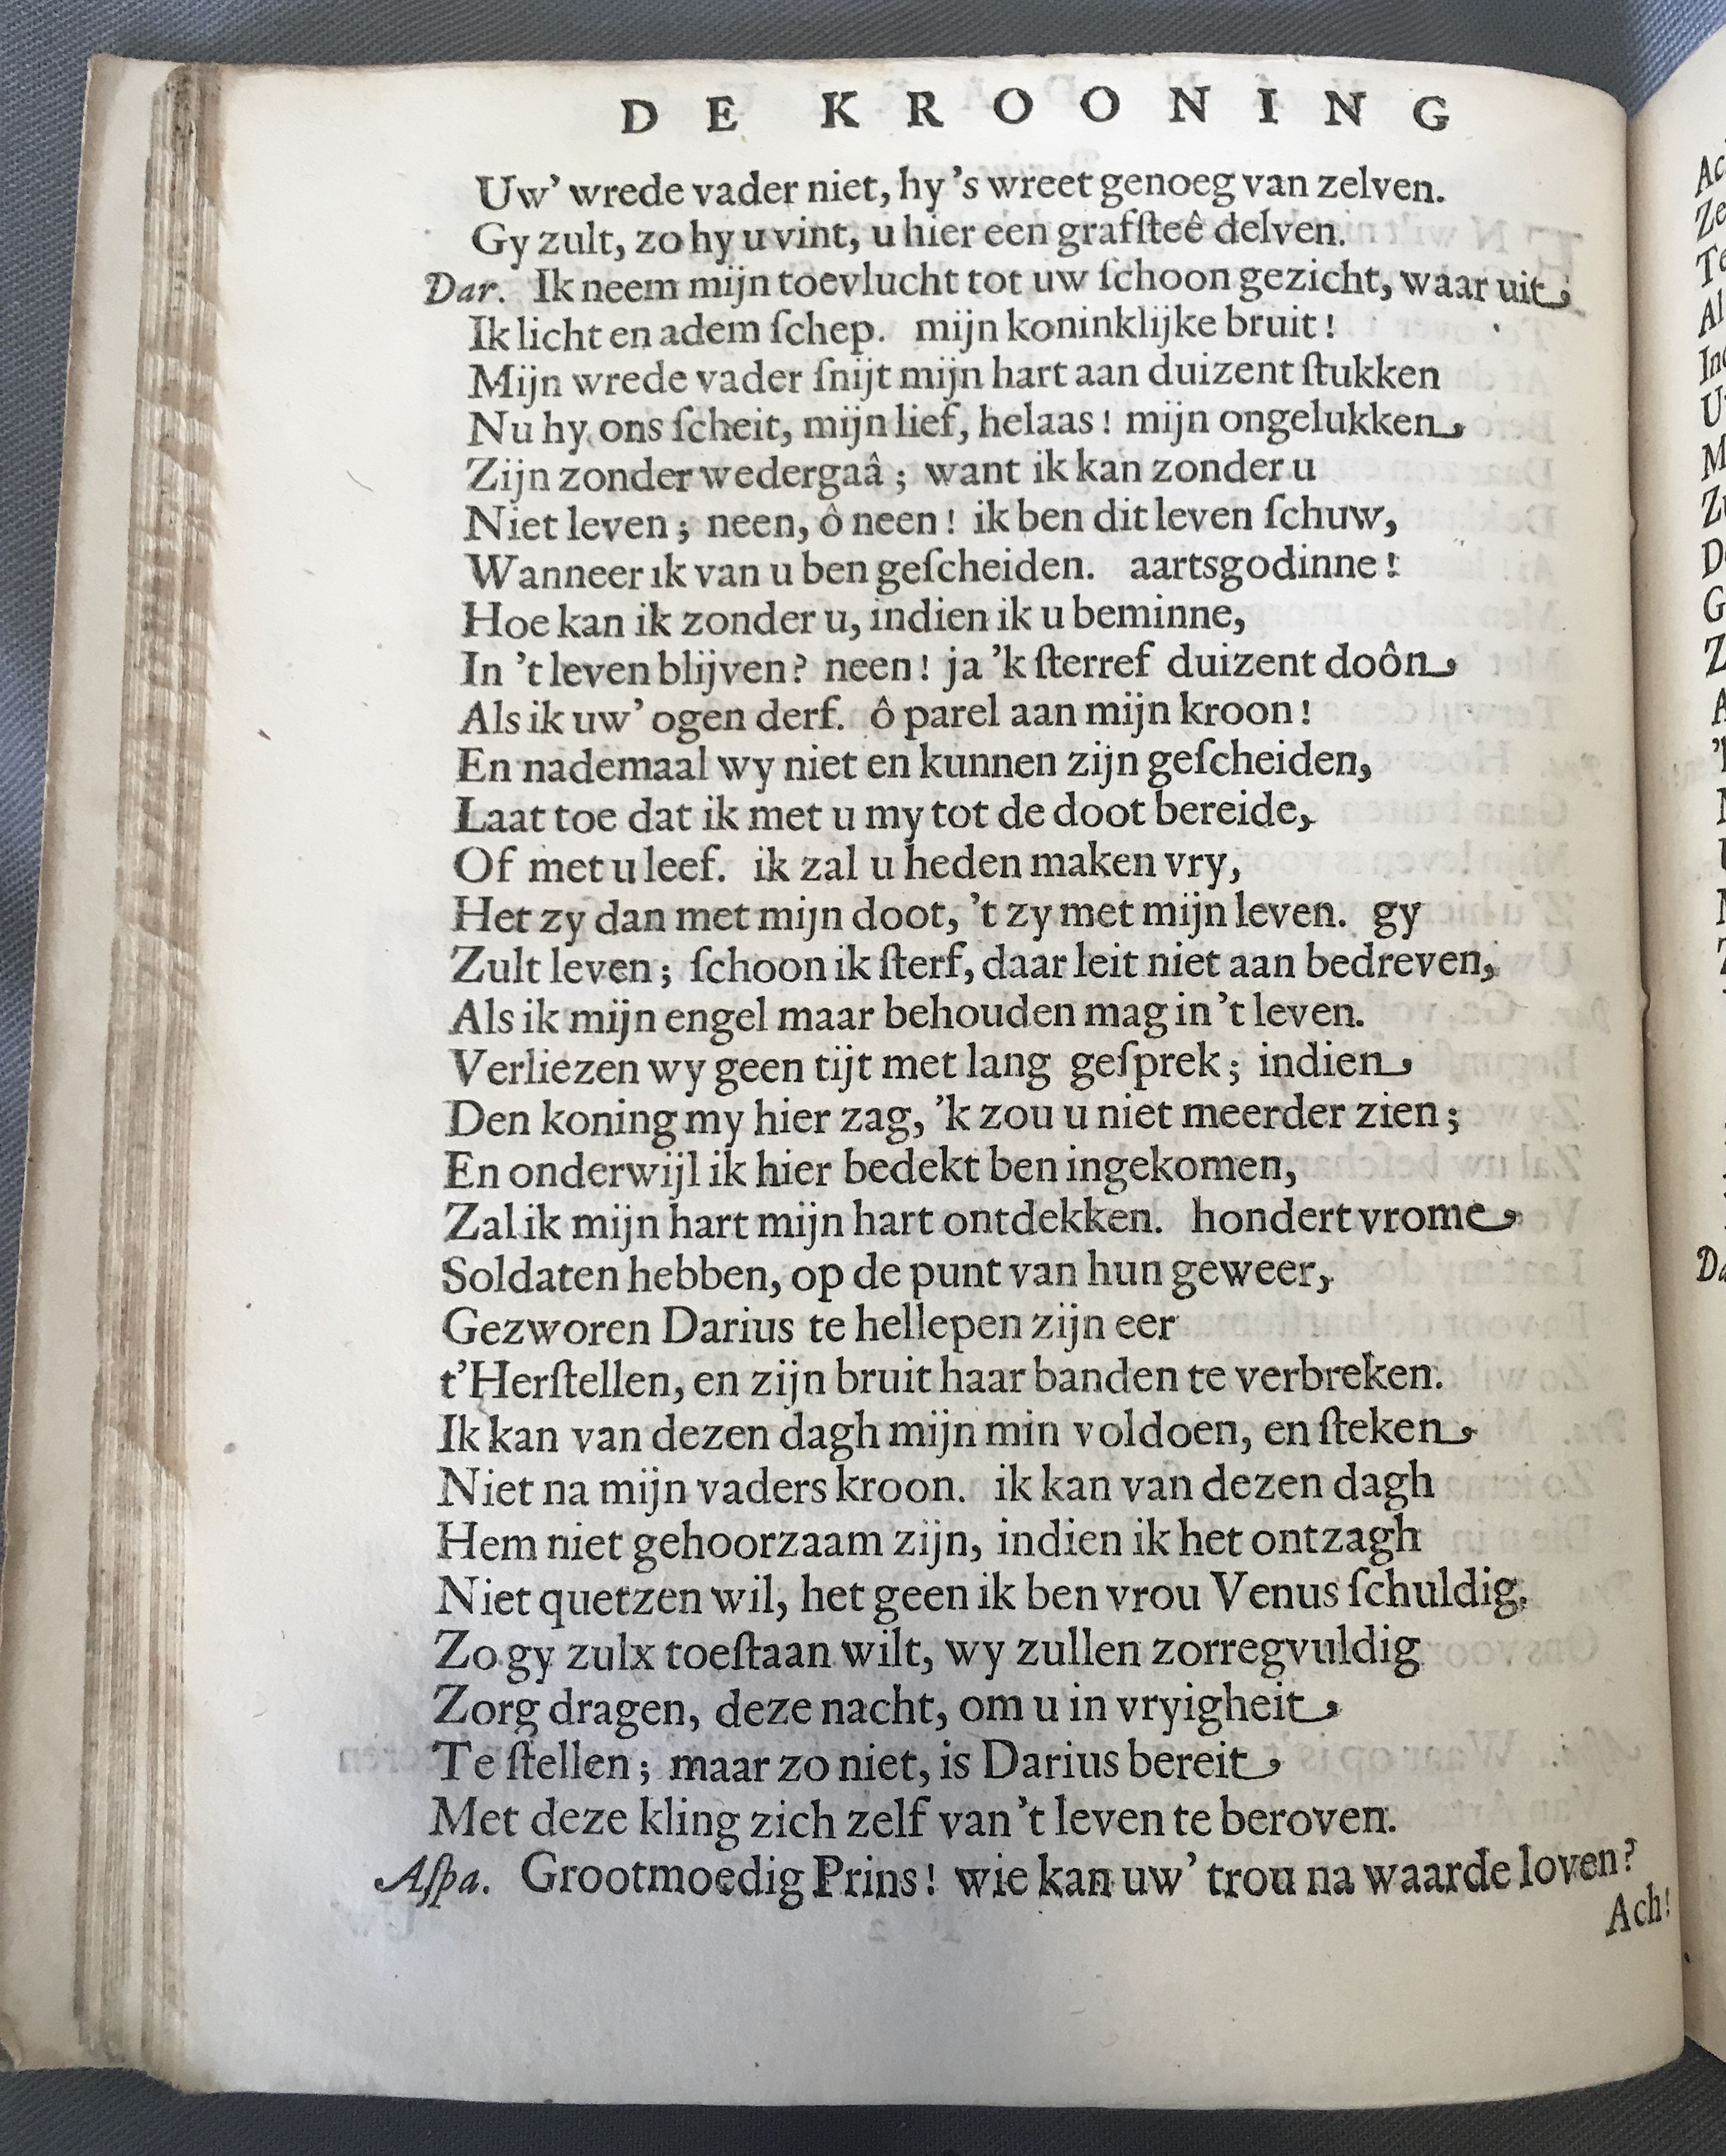 DE KROONING
Uw' wrede vader niet, hy 's wreet genoeg van zelven.
Gy zult, zo hy u vint, u hier een grafſteê delven.
Dar. Ik neem mijn toevlucht tot uw ſchoon gezicht, waar uit
Ik licht en adem ſchep. mijn koninklijke bruit!
Mijn wrede vader ſnijt mijn hart aan duizent ſtukken
Nu hy ons ſcheit, mijn lief, helaas! mijn ongelukken
Zijn zonder wedergaâ; want ik kan zonder u
Niet leven; neen, ô neen! ik ben dit leven ſchuw,
Wanneer ik van u ben geſcheiden. aartsgodinne!
Hoe kan ik zonder u, indien ik u beminne,
In 't leven blijven? neen! ja 'k ſterref duizent doôn
Als ik uw' ogen derf. ô parel aan mijn kroon!
En nademaal wy niet en kunnen zijn geſcheiden,
Laat toe dat ik met u my tot de doot bereide,
Of met u leef. ik zal u heden maken vry,
Het zy dan met mijn doot, 't zy met mijn leven. gy
Zult leven; ſchoon ik ſterf, daar leit niet aan bedreven,
Als ik mijn engel maar behouden mag in 't leven.
Verliezen wy geen tijt met lang geſprek; indien
Den koning my hier zag, 'k zou u niet meerder zien;
En onderwijl ik hier bedekt ben ingekomen,
Zal ik mijn hart mijn hart ontdekken. hondert vrome
Soldaten hebben, op de punt van hun geweer,
Gezworen Darius te hellepen zijn eer
t'Herſtellen, en zijn bruit haar banden te verbreken.
Ik kan van dezen dagh mijn min voldoen, en ſteken
Niet na mijn vaders kroon. ik kan van dezen dagh
Hem niet gehoorzaam zijn, indien ik het ontzagh
Niet quetzen wil, het geen ik ben vrou Venus ſchuldig.
Zo gy zulx toeſtaan wilt, wy zullen zorregvuldig
Zorg dragen, deze nacht, om u in vryigheit
Te ſtellen; maar zo niet, is Darius bereit
Met deze kling zich zelf van 't leven te beroven.
Aſpa. Grootmoedig Prins! wie kan uw' trou na waarde loven?
Ach!